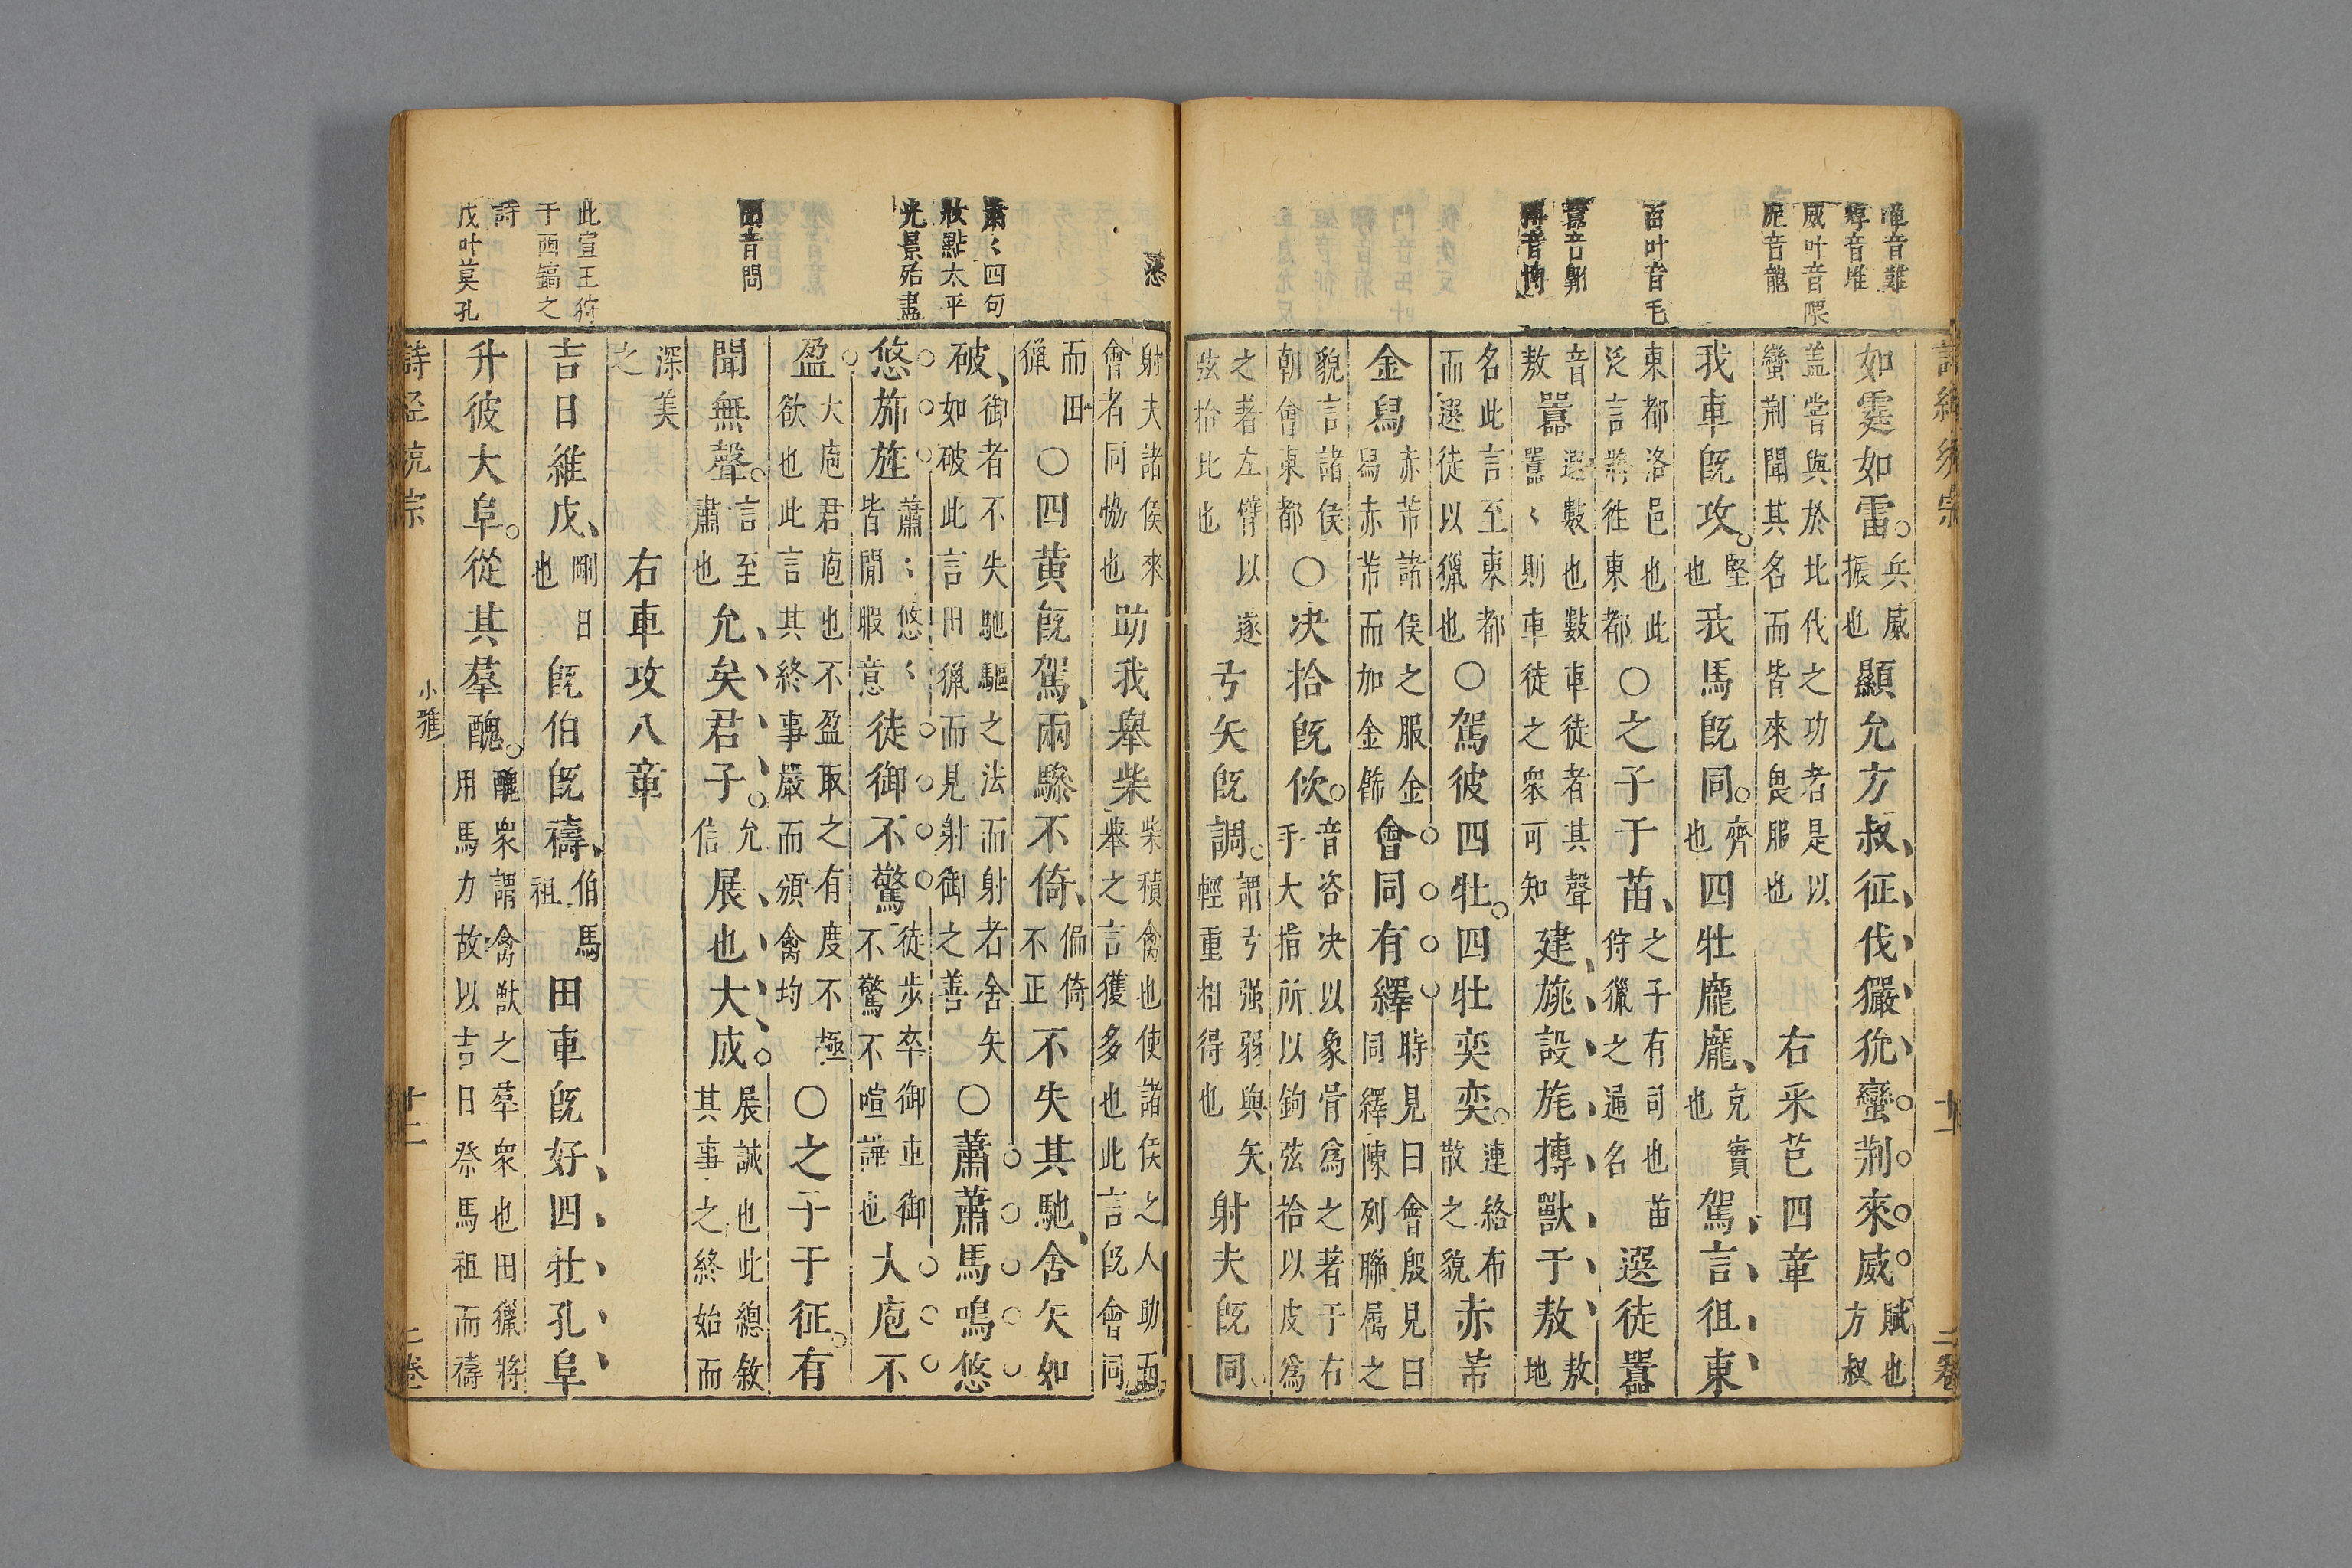 嘽音難
焞音堆
威叶音隈
厖音龍
苗叶音毛
囂音鄥
搏音博
如霆如雷兵威振也顯允方叔征伐玁狁蠻荆來威賦也方叔
盖嘗與於北伐之功者是以蠻荆聞其名而皆來畏服也右采芑四章
我車旣攻堅也我馬旣同齊也四牡龐龐克實也駕言徂東
東都洛邑也此泛言將徃東都○之子于苗之子有司也苗狩獵之通名選徒囂
音敖囂選數也數車徒者其聲囂〻則車徒之衆可知建旐設旄搏獸于敖敖地
名此言至東都而選徒以獵也○駕彼四牡四牡奕奕連絡布散之貌赤芾
金舃赤芾諸侯之服金舃赤芾而加金飾會同有繹時見曰會殷見曰同繹陳列聯属之
貌言諸侯朝會東都○决拾旣佽音咨决以象骨爲之著于右手大指所以鉤弦拾以皮爲
之著左臂以遂弦拾比也弓矢旣調謂弓强弱與矢輕重相得也射夫旣同
詩經統宗 十一 二卷
恣
肅〻四句
妝點太平
光景殆盡
聞音問
此宣王狩
于西鎬之
詩
戊叶莫孔
射夫諸侯來會者同恊也助我舉柴柴積禽也使諸侯之人助而舉之言獲多也此言旣會同
而田獵○四黄旣駕兩驂不倚偏倚不正不失其馳舍矢如
破御者不失馳驅之法而射者舍矢如破此言田獵而見射御之善○蕭蕭馬鳴悠
悠斾旌蕭〻悠〻皆閒暇意徒御不驚徒步卒御車御不驚不喧譁也大庖不
盈大庖君庖也不盈取之有度不極欲也此言其終事嚴而頒禽均○之子于征有
聞無聲言至肅也允矣君子允信展也大成展誠也此總敘其事之終始而
深美之右車攻八章
吉日維戊剛日也旣伯旣禱伯馬祖田車旣好四牡孔阜
升彼大阜從其羣醜醜衆謂禽獸之羣衆也田獵將用馬力故以吉日祭馬祖而禱
詩經統宗 小雅 十二 二卷